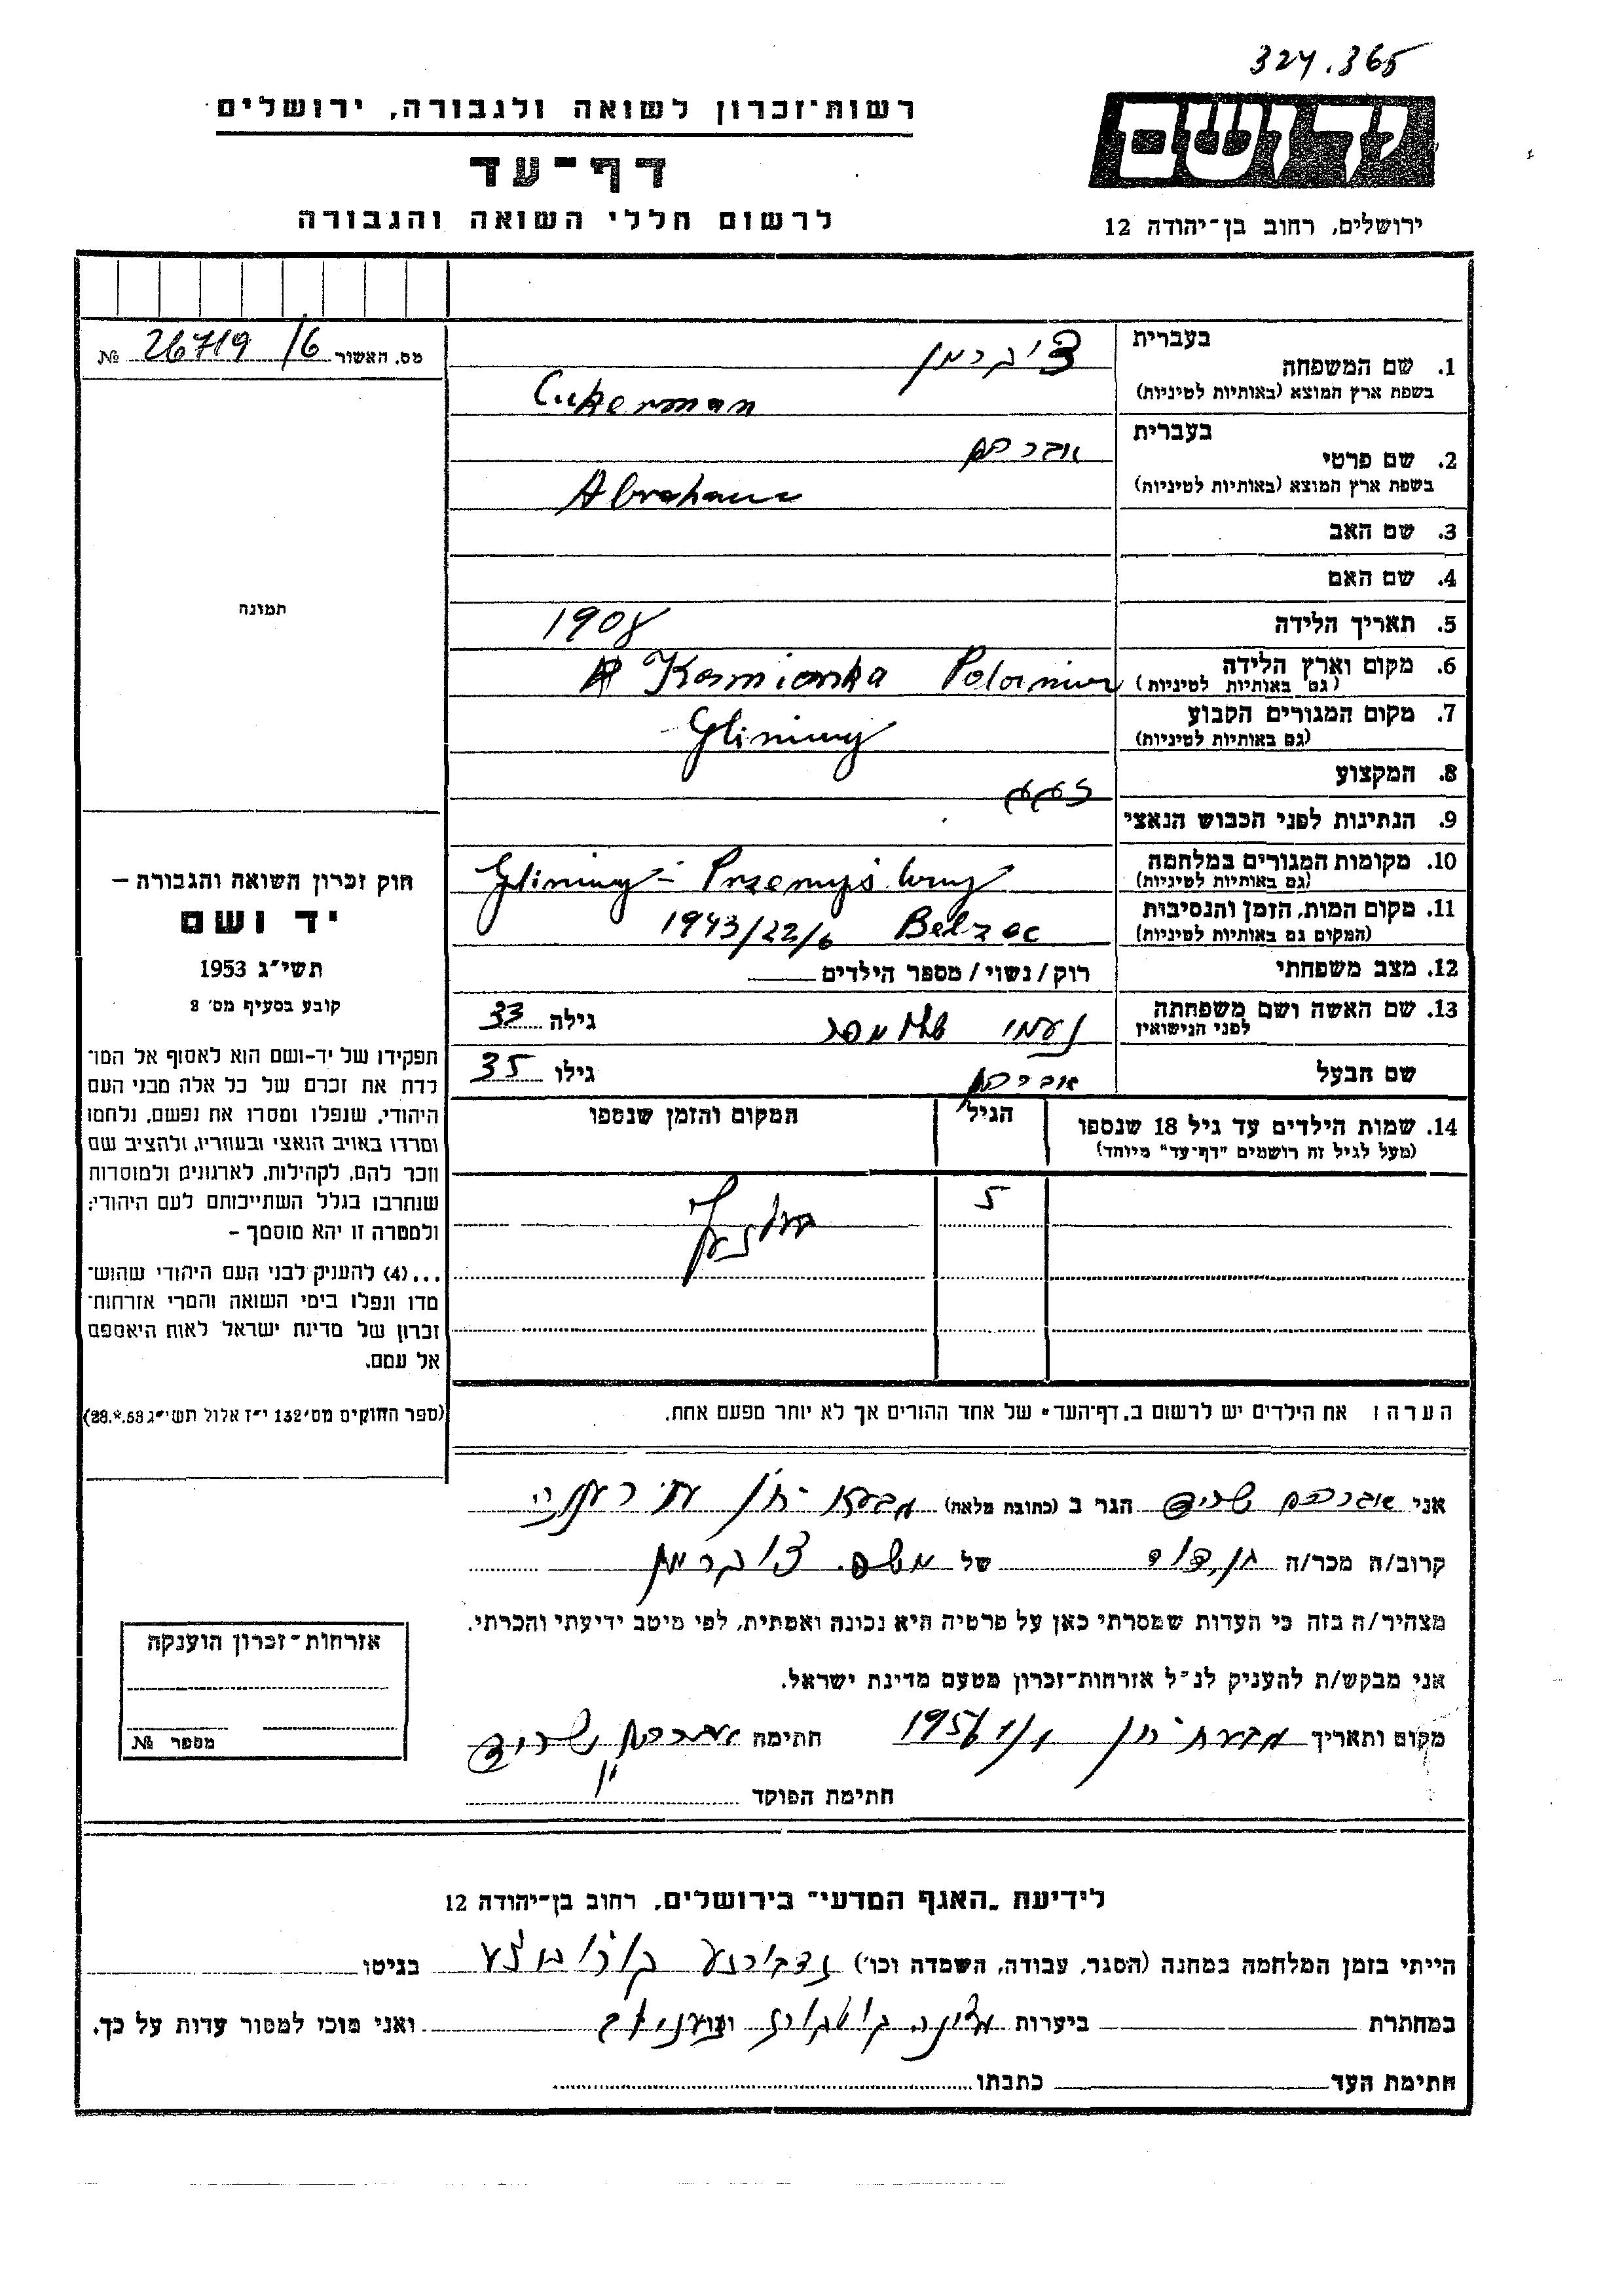 324.365
יד ושם
רשות־זכרון לשואה ולגבורה, ירושלים
דף־עד
לרשום חללי השואה והגבורה
ירושלים, רחוב בן־יהודה 12
מס. האשור 26719/6 №
בעברית
1. שם המשפחה צוקרמן
בשפת ארץ המוצא (באותיות לטיניות) Cukerman
בעברית
2. שם פרטי אברהם
בשפת ארץ המוצא (באותיות לטיניות) Abraham
3. שם האב
4. שם האם
5. תאריך הלידה 1908
6. מקום וארץ הלידה Kamionka
(גם באותיות לטיניות)
7. מקום המגורים הקבוע Gliniany
(גם באותיות לטיניות)
8. המקצוע
9. הנתינות לפני הכבוש הנאצי
10. מקומות המגורים במלחמה Gliniany - Przemyślany
(גם באותיות לטיניות)
11. מקום המות, הזמן והנסיבות Belzec 1943/22/6
(המקום גם באותיות לטיניות)
12. מצב משפחתי רוק/נשוי/מספר הילדים
13. שם האשה ושם משפחתה נעמי גילה 33
לפני הנישואין
שם הבעל אברהם גילו 35
14. שמות הילדים עד גיל 18 שנספו הגיל המקום והזמן שנספו
(מעל לגיל זה רושמים "דף־עד" מיוחד)
5
הערה: את הילדים יש לרשום ב„דף־העד" של אחד ההורים אך לא יותר מפעם אחת.
תמונה
חוק זכרון השואה והגבורה –
יד ושם
תשי"ג 1953
קובע בסעיף מס' 2
תפקידו של יד-ושם הוא לאסוף אל המו־
לדת את זכרם של כל אלה מבני העם
היהודי, שנפלו ומסרו את נפשם, נלחמו
ומרדו באויב הנאצי ובעוזריו, ולהציב שם
וזכר להם, לקהילות, לארגונים ולמוסדות
שנחרבו בגלל השתייכותם לעם היהודי;
ולמטרה זו יהא מוסמך –
...(4) להעניק לבני העם היהודי שהוש־
מדו ונפלו בימי השואה והמרי אזרחות־
זכרון של מדינת ישראל לאות היאספם
אל עמם.
(ספר החוקים מס' 132 י"ז אלול תשי"ג 28.8.53)
אני אברהם שריד הגר ב (כתובת מלאה)
קרוב/ה מכר/ה של משפ. צוקרמן
מצהיר/ה בזה כי העדות שמסרתי כאן על פרטיה היא נכונה ואמתית, לפי מיטב ידיעתי והכרתי.
אני מבקש/ת להעניק לנ"ל אזרחות־זכרון מטעם מדינת ישראל.
מקום ותאריך 1956 חתימה אברהם שריד
חתימת הפוקד
אזרחות־זכרון הוענקה
מספר №
לידיעת „האגף המדעי" בירושלים, רחוב בן־יהודה 12
הייתי בזמן המלחמה במחנה (הסגר, עבודה, השמדה וכו') בגיטו
במחתרת ביערות ואני מוכן למסור עדות על כך.
חתימת העד כתבתו